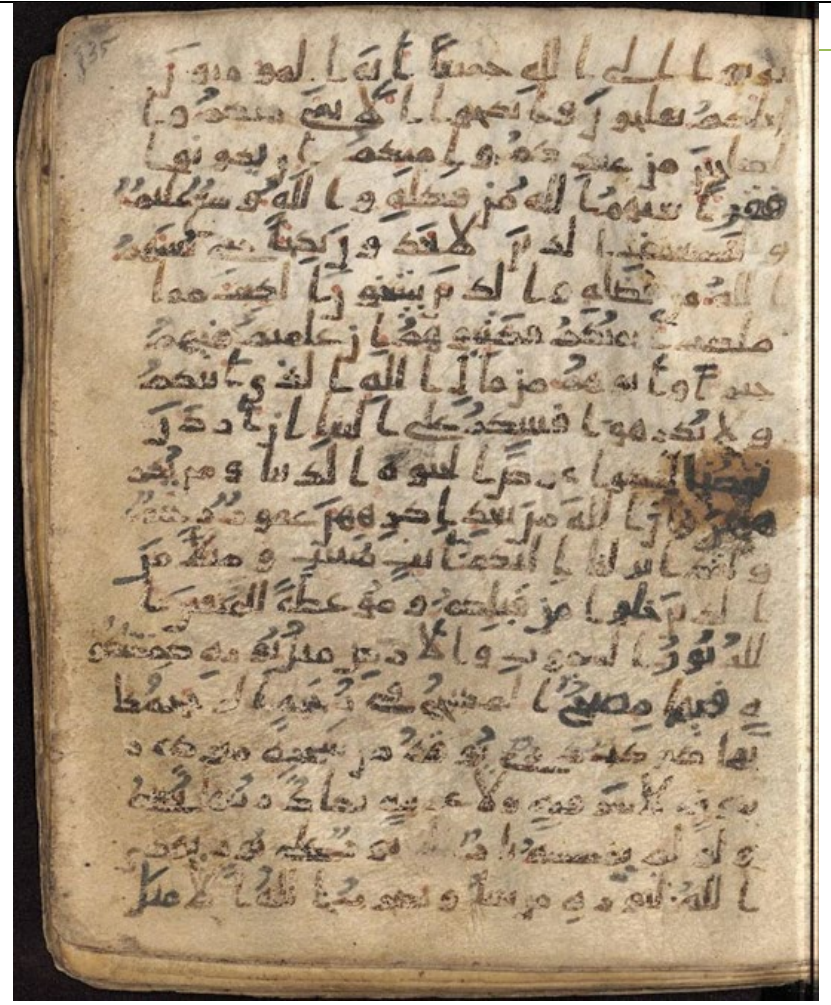 توبوا الى الله جميعا ايه المومنون
لعلكم تفلحون وانكحوا الايمى منكم وا
لصلحين من عبدكم وامايكم ان يكونوا
فقرا يغنهم الله من فضله والله وسع عليم
وليستعفف الذين لا يجدون نكحا حتى يغنيهم
الله من فضله والذين يبتغون الكتب مما
ملكت ايمنكم فكتبوهم ان علمتم فيهم
خيرا واتوهم من مال الله الذي اتيكم
ولا تكرهوا فتيتكم على البغا ان اردن
تحصنا لتبتغوا عرض الحيوة الدنيا ومن يكر
ههن فان الله من بعد اكرههن غفور رحيم
ولقد انزلنا اليكم ايت مبينت ومثلا من
الذين خلوا من قبلكم وموعظة للمتقين ا
لله نور السموت والارض مثل نوره كمشكو
ة فيها مصبح المصبح في زججة الزججة كا
نها كوكب دري يوقد من شجرة مبركة ز
يتونة لا شرقية ولا غربية يكاد زيتها يضي
ولو لم تمسسه نار نور على نور يهدي
الله لنوره من يشا ويضرب الله الامثل